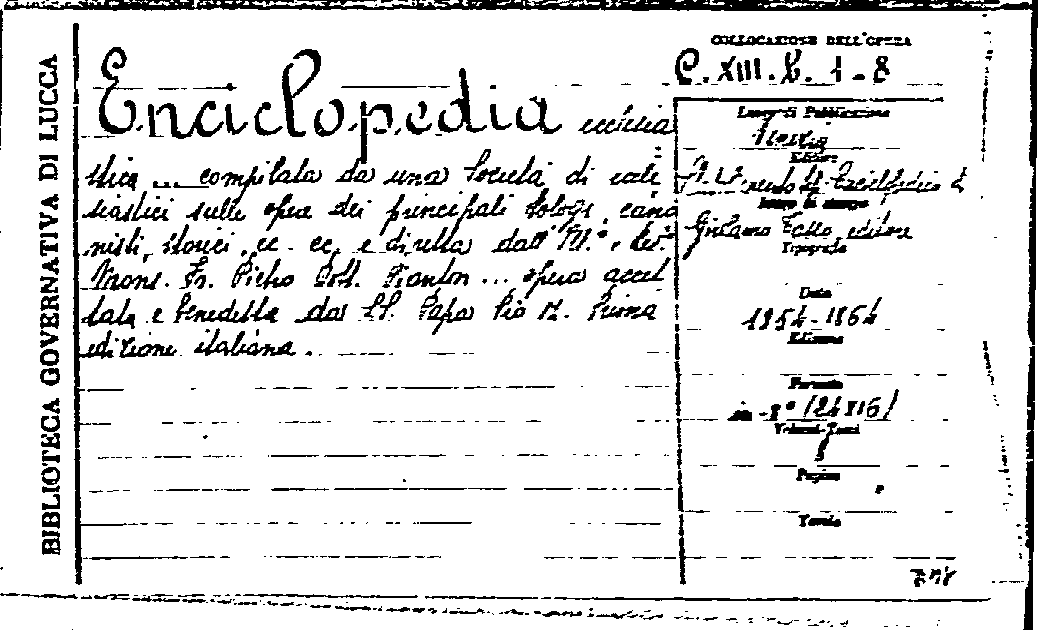 BIBLIOTECA GOVERNATIVA DI LUCCA
COLLOCAZIONE DELL'OPERA
C. XIII. X. 1-8
Enciclopedia ecclesia
stica ... compilata da una Società di eccle
siastici sulle opere dei principali teologi, cano
nisti, storici, ec. ec. e diretta dall'
Mons. Fr. Pietro Dott. Pianton ... opera accet
tata e benedetta da SS. Papa Pio IX. Prima
edizione italiana.
Luogo di Pubblicazione
Venezia
Editore
Girolamo Tasso, editore
Tipografia
Data
1854-1864
Edizione
Formato
in-8° (24x16)
Volumi-Tomi
8
Pagine
Tavole